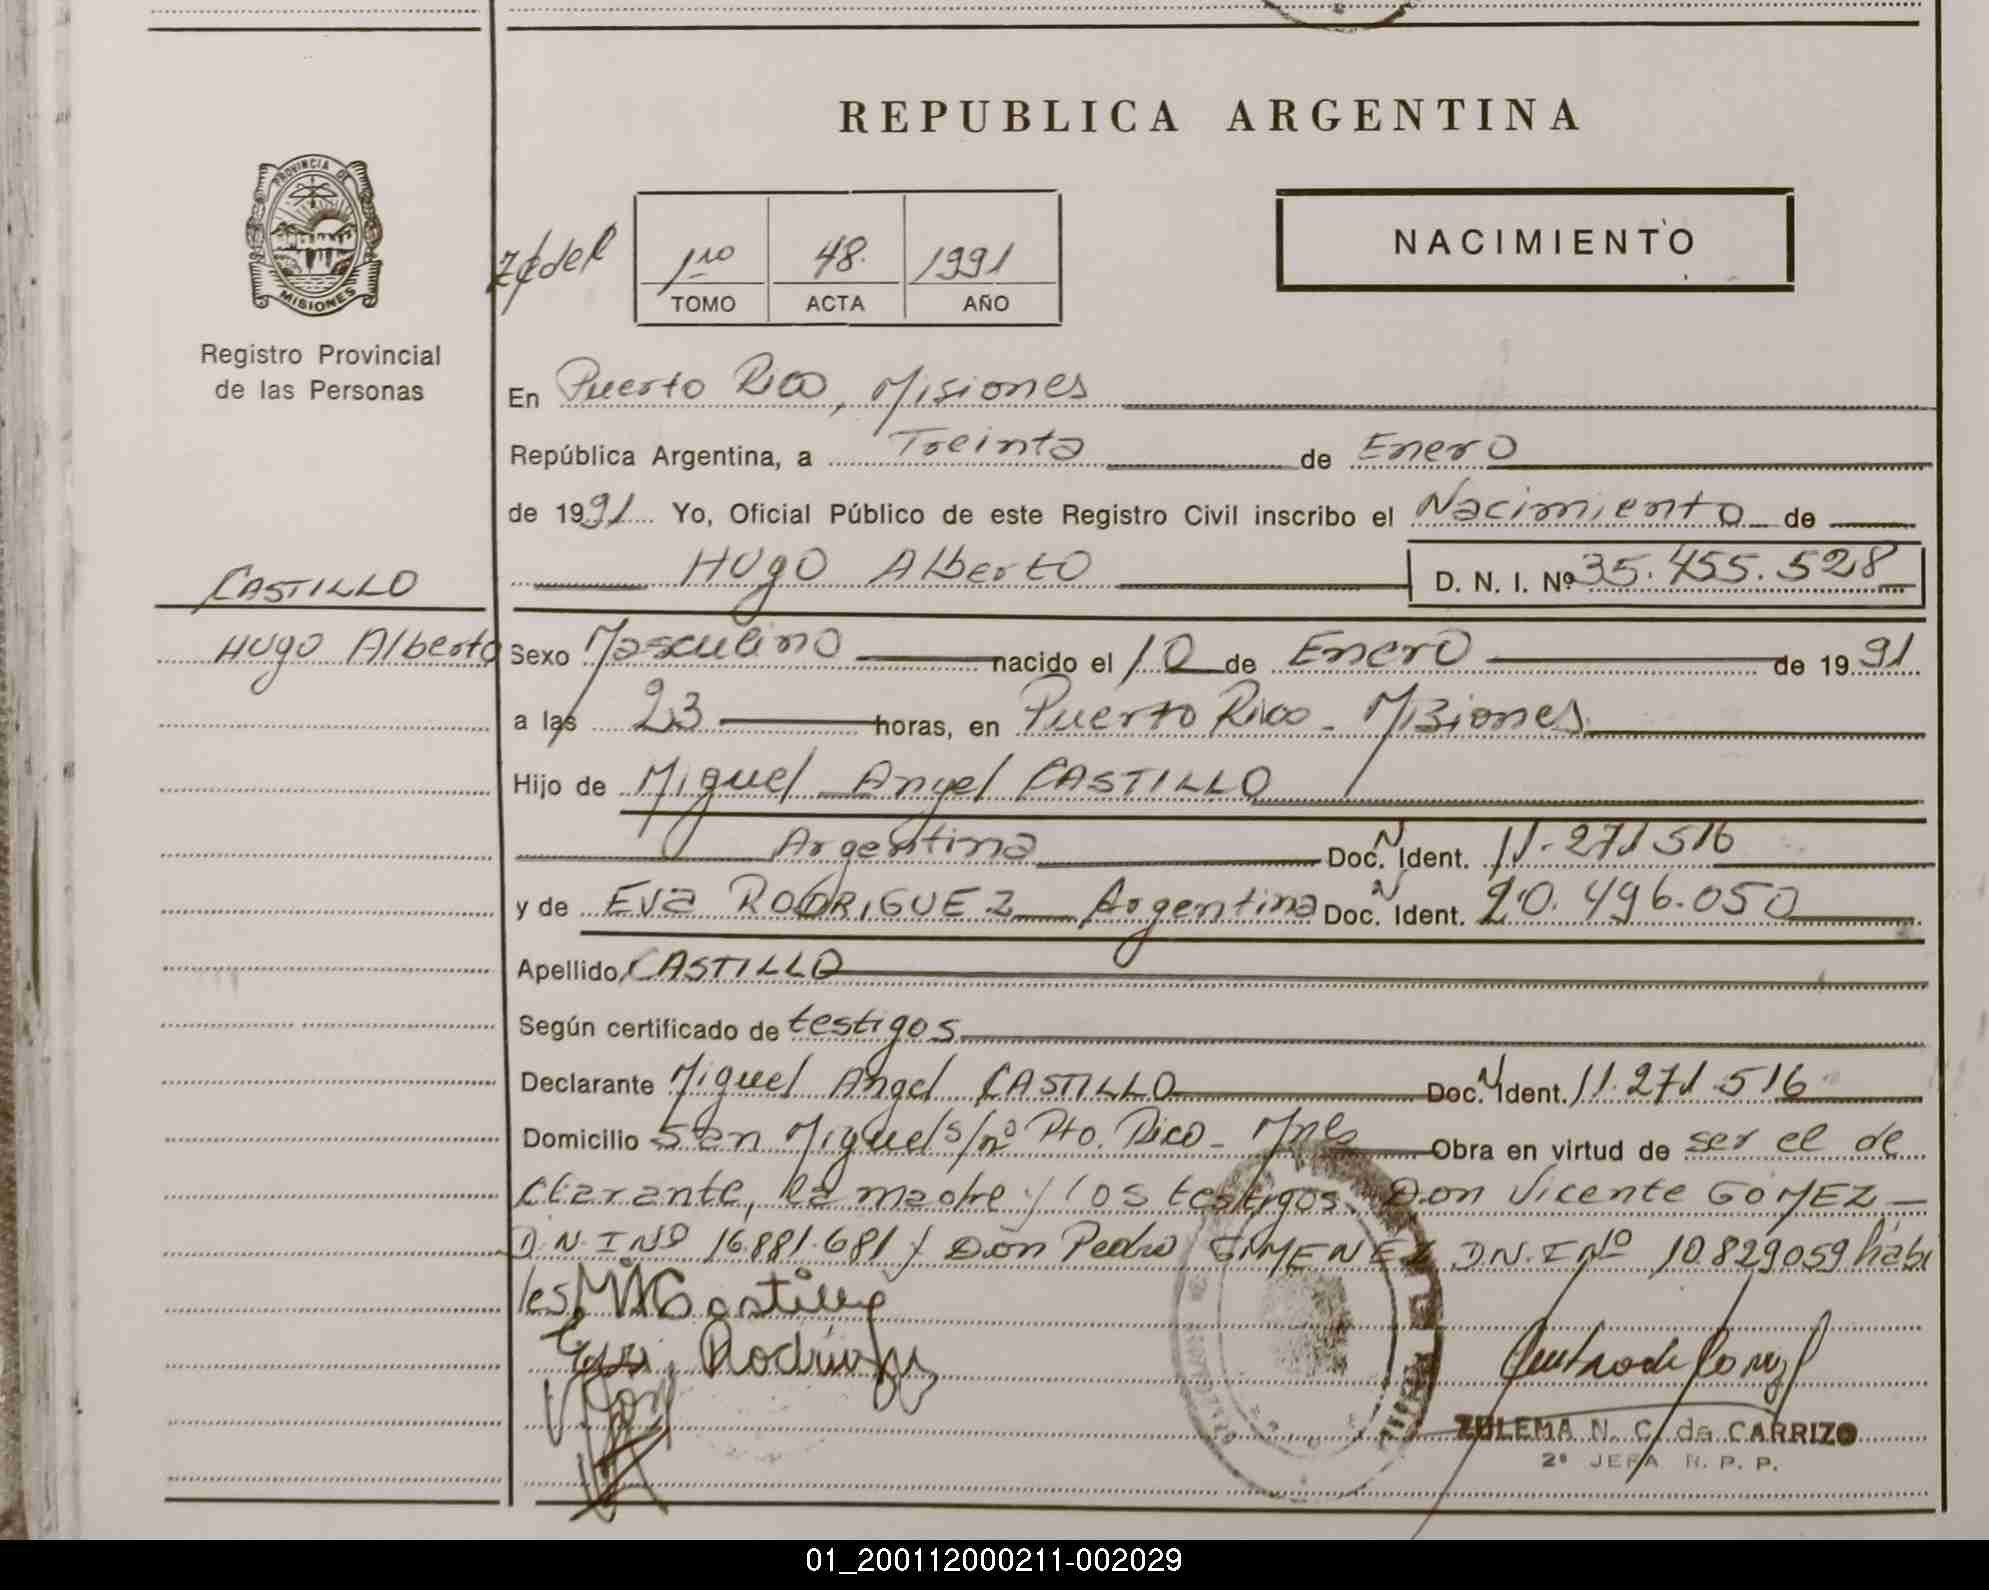 REPUBLICA ARGENTINA
PROVINCIA DE
MISIONES
Registro Provincial
de las Personas
1ro 48. 1991
TOMO ACTA AÑO
NACIMIENTO
En Puerto Rico, Misiones
República Argentina, a Treinta de Enero
de 1991 Yo, Oficial Público de este Registro Civil inscribo el Nacimiento de
Hugo Alberto D. N. I. Nº 35.455.528
CASTILLO
Hugo Alberto
Sexo Masculino nacido el 10 de Enero de 1991
a las 23 horas, en Puerto Rico - Misiones
Hijo de Miguel Angel CASTILLO
Argentina Doc. N Ident. 11.271516
y de Eva RODRIGUEZ Argentina Doc. N Ident. 20.496.050
Apellido CASTILLO
Según certificado de testigos
Declarante Miguel Angel CASTILLO Doc. N Ident. 11.271.516
Domicilio San Miguel s/nº Pto. Rico - Mnes Obra en virtud de ser el de
clarante, la madre y los testigos. Don Vicente GOMEZ
D.N.I Nº 16.881.681 y Don Pedro GIMENEZ D.N.I Nº 10.829059 hábi
les. M A Castillo
Eva Rodriguez
ZULEMA N. C. de CARRIZO
2ª JEFA R. P. P.
01_200112000211-002029